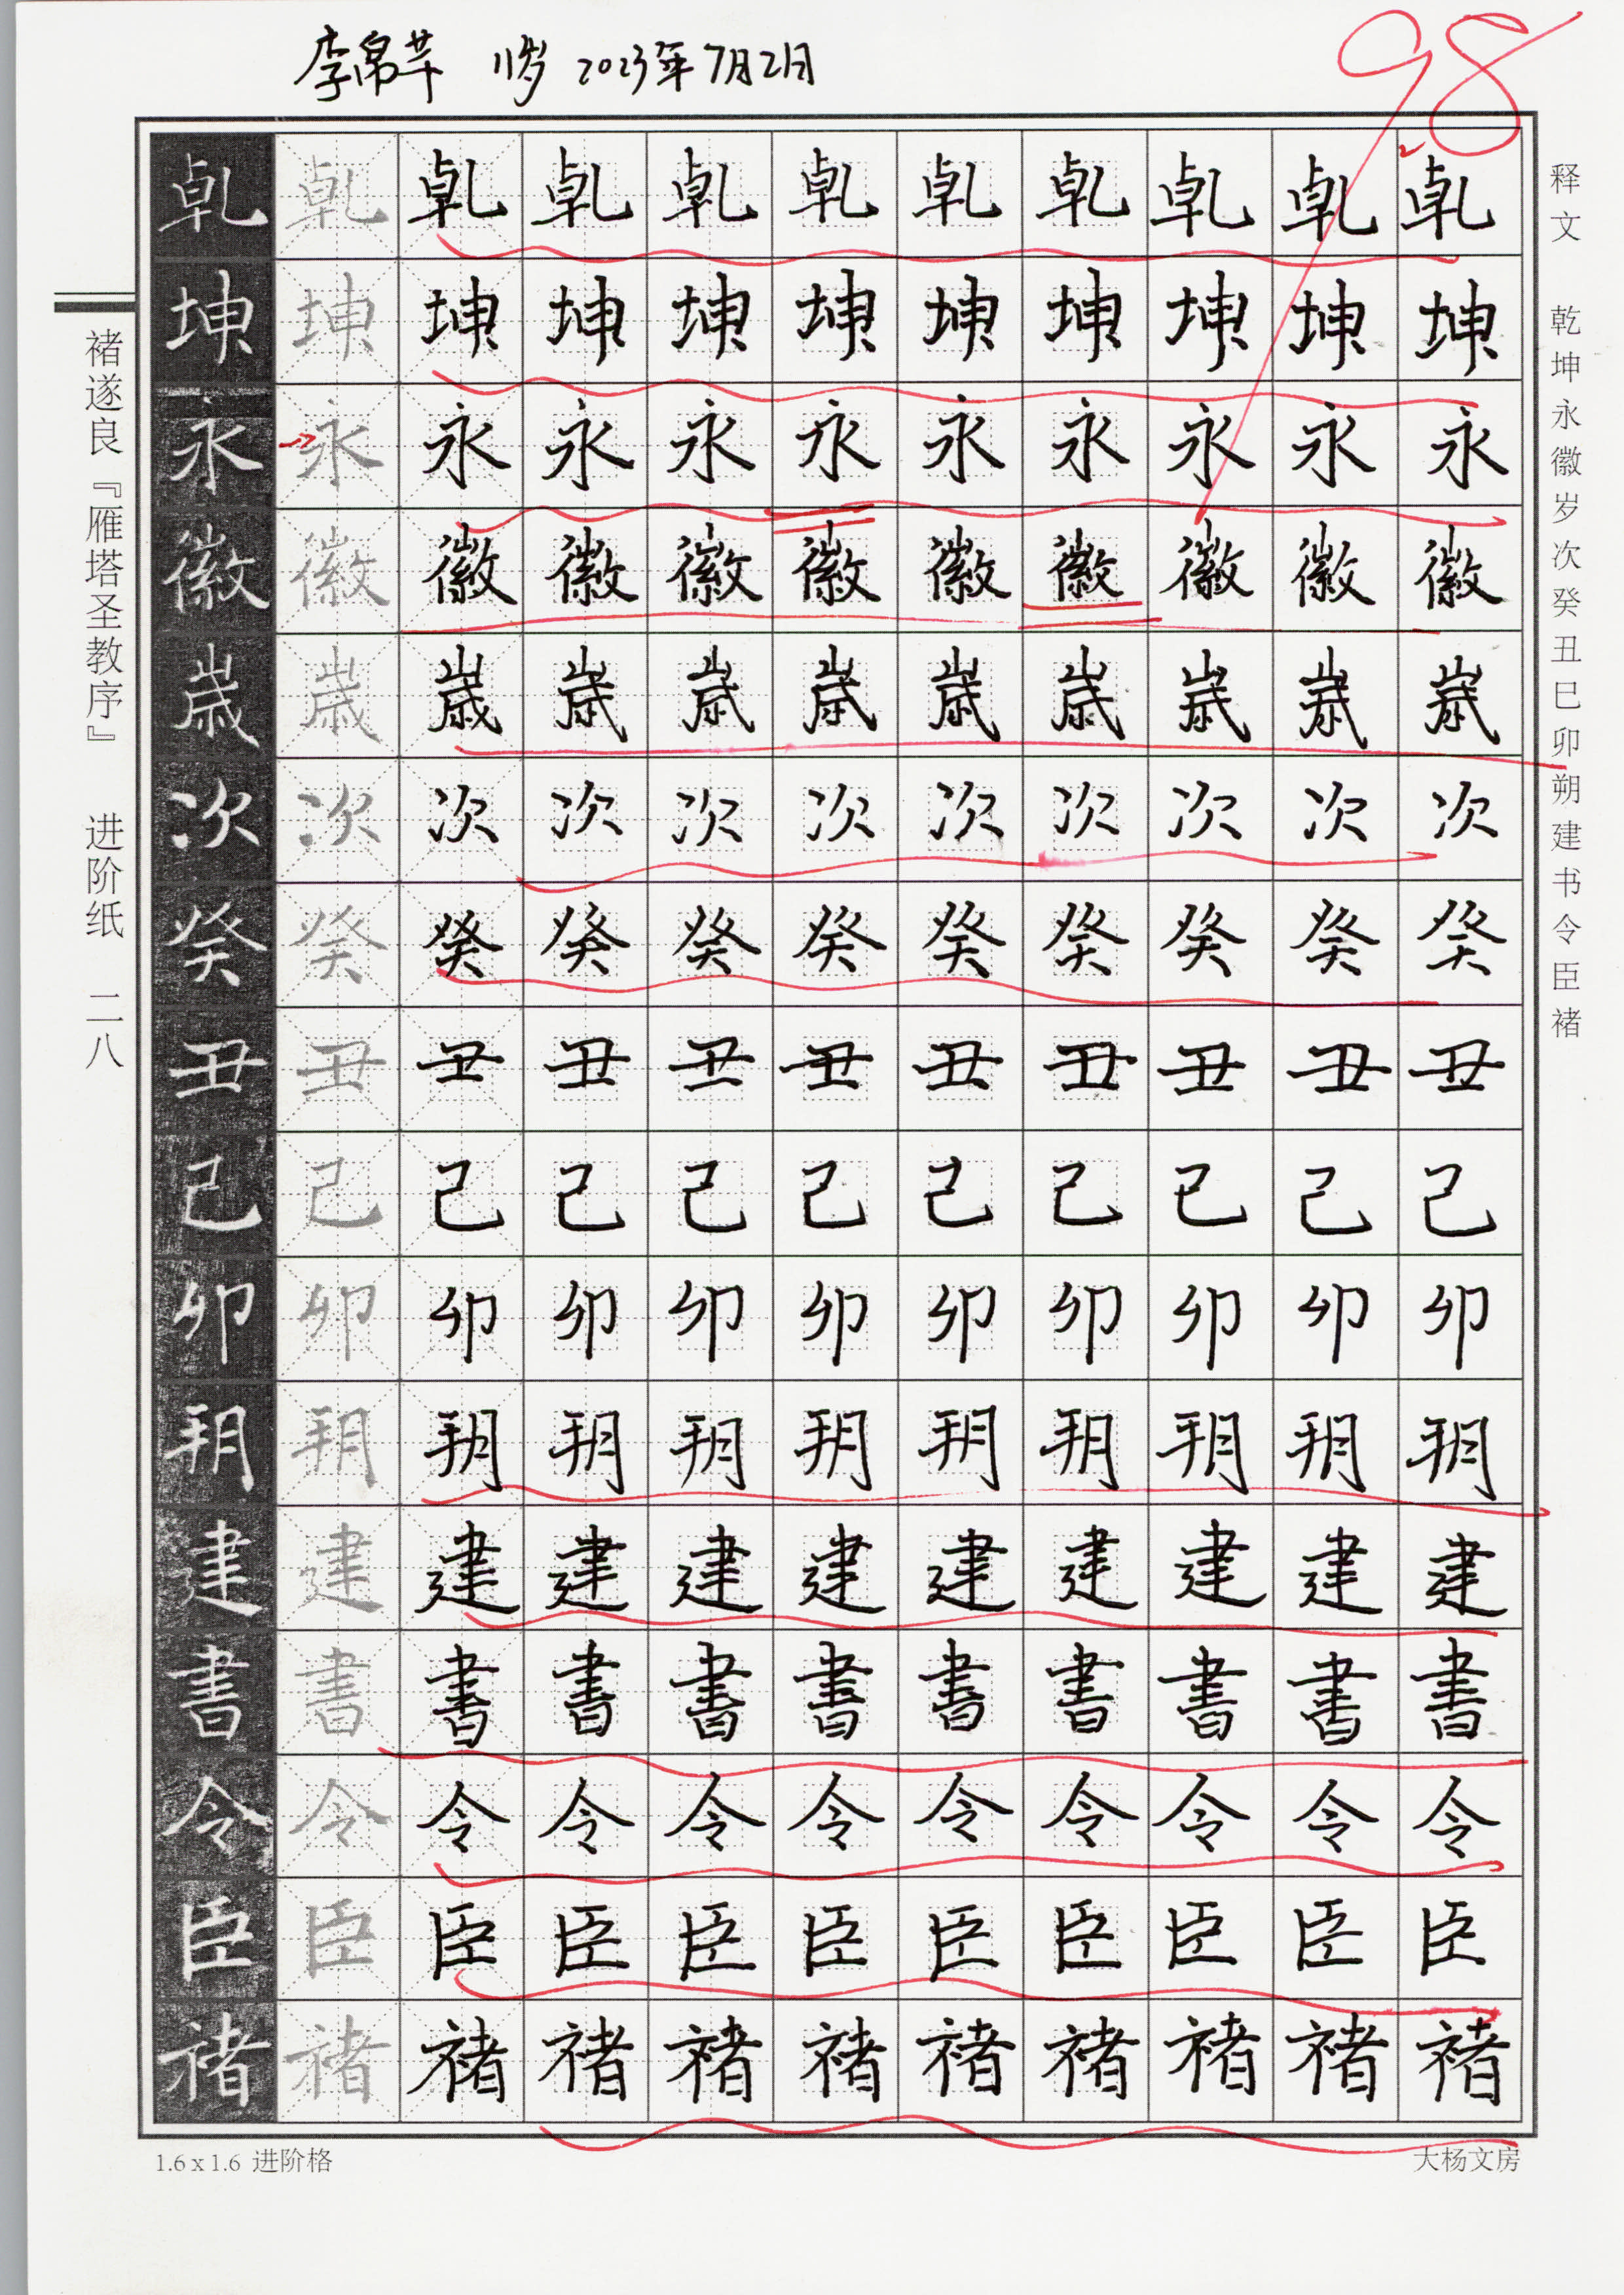 李帛芊 11岁 2023年7月2日
98
释文 乾坤永徽岁次癸丑巳卯朔建书令臣褚
乹乹乹乹乹乹乹乹乹乹乹
坤坤坤坤坤坤坤坤坤坤坤
永永永永永永永永永永永
徽徽徽徽徽徽徽徽徽徽徽
歳歳歳歳歳歳歳歳歳歳歳
次次次次次次次次次次次
癸癸癸癸癸癸癸癸癸癸癸
丑丑丑丑丑丑丑丑丑丑丑
己己己己己己己己己己己
卯卯卯卯卯卯卯卯卯卯卯
朔朔朔朔朔朔朔朔朔朔朔
建建建建建建建建建建建
書書書書書書書書書書書
令令令令令令令令令令令
臣臣臣臣臣臣臣臣臣臣臣
褚褚褚褚褚褚褚褚褚褚褚
褚遂良『雁塔圣教序』 进阶纸 二八
1.6x1.6 进阶格
大杨文房